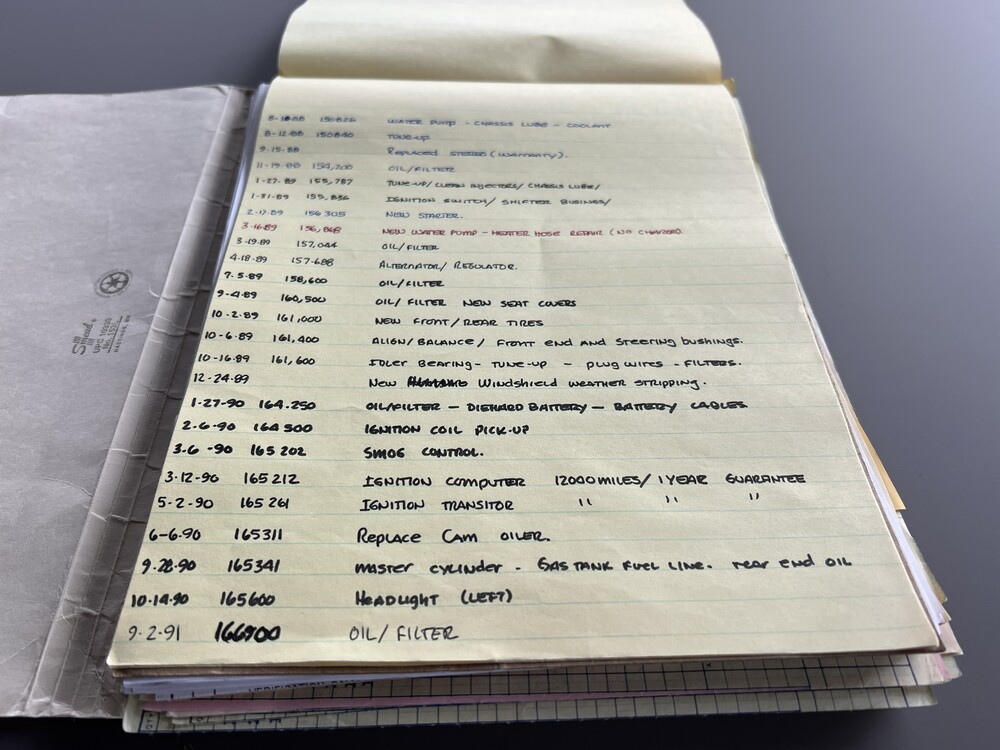 8-10-88 150826 WATER PUMP - CHASSIS LUBE - COOLANT
8-12-88 150840 TUNE-UP
9-15-88 Replaced STEREO (WARRANTY).
11-19-88 154,200 OIL/FILTER
1-27-89 155,787 TUNE-UP/CLEAN INJECTORS/CHASSIS LUBE/
1-31-89 155,836 IGNITION SWITCH/ SHIFTER BUSINGS/
2-17-89 156305 NEW STARTER.
3-16-89 156,868 NEW WATER PUMP - HEATER HOSE REPAIR (NO CHARGE).
3-19-89 157,044 OIL/FILTER
4-18-89 157-688 ALTERNATOR/ REGULATOR.
7-5-89 158,600 OIL/FILTER
9-4-89 160,500 OIL/ FILTER NEW SEAT COVERS
10-2-89 161,000 NEW FRONT/REAR TIRES
10-6-89 161,400 ALIGN/BALANCE/ FRONT END AND STEERING BUSHINGS.
10-16-89 161,600 IDLER BEARING- TUNE-UP - PLUG WIRES - FILTERS.
12-24-89 NEW Windshield WEATHER STRIPPING.
1-27-90 164.250 OIL/FILTER - DIEHARD BATTERY - BATTERY CABLES
2-6-90 164500 IGNITION COIL PICK-UP
3-6-90 165202 SMOG CONTROL.
3-12-90 165212 IGNITION COMPUTER 12000 MILES/ 1 YEAR GUARANTEE
5-2-90 165261 IGNITION TRANSITOR " " "
6-6-90 165311 Replace Cam OILER.
9-28-90 165341 MASTER CYLINDER - GAS TANK FUEL LINE. rear end OIL
10-14-90 165600 HEADLIGHT (LEFT)
9-2-91 166900 OIL/ FILTER
Smead
UPC 10330
HASTINGS, MN